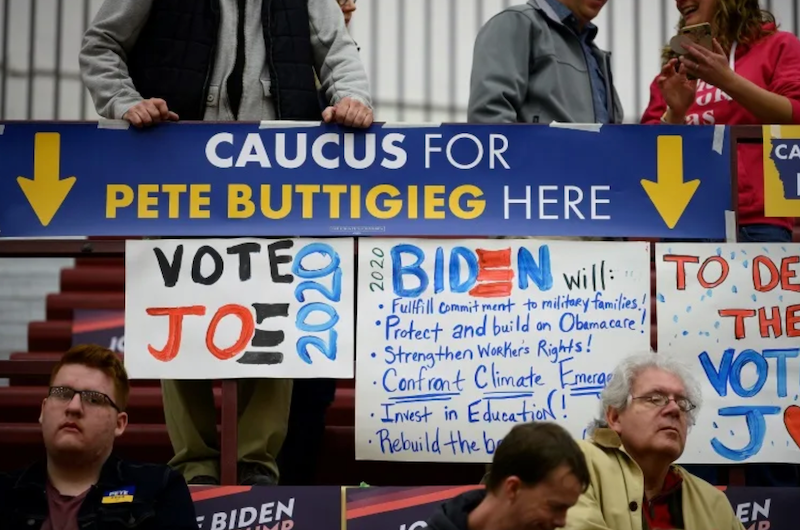 CAUCUS FOR
PETE BUTTIGIEG HERE
CA
VOTE
JOE
2020
2020
BIDEN will:
• Fullfill commitment to military families!
• Protect and build on Obamacare!
• Strengthen Worker's Rights!
• Confront Climate Emerge
• Invest in Education!
• Rebuild the
TO DE
THE
VOT
J
PETE
BIDEN
BIDEN